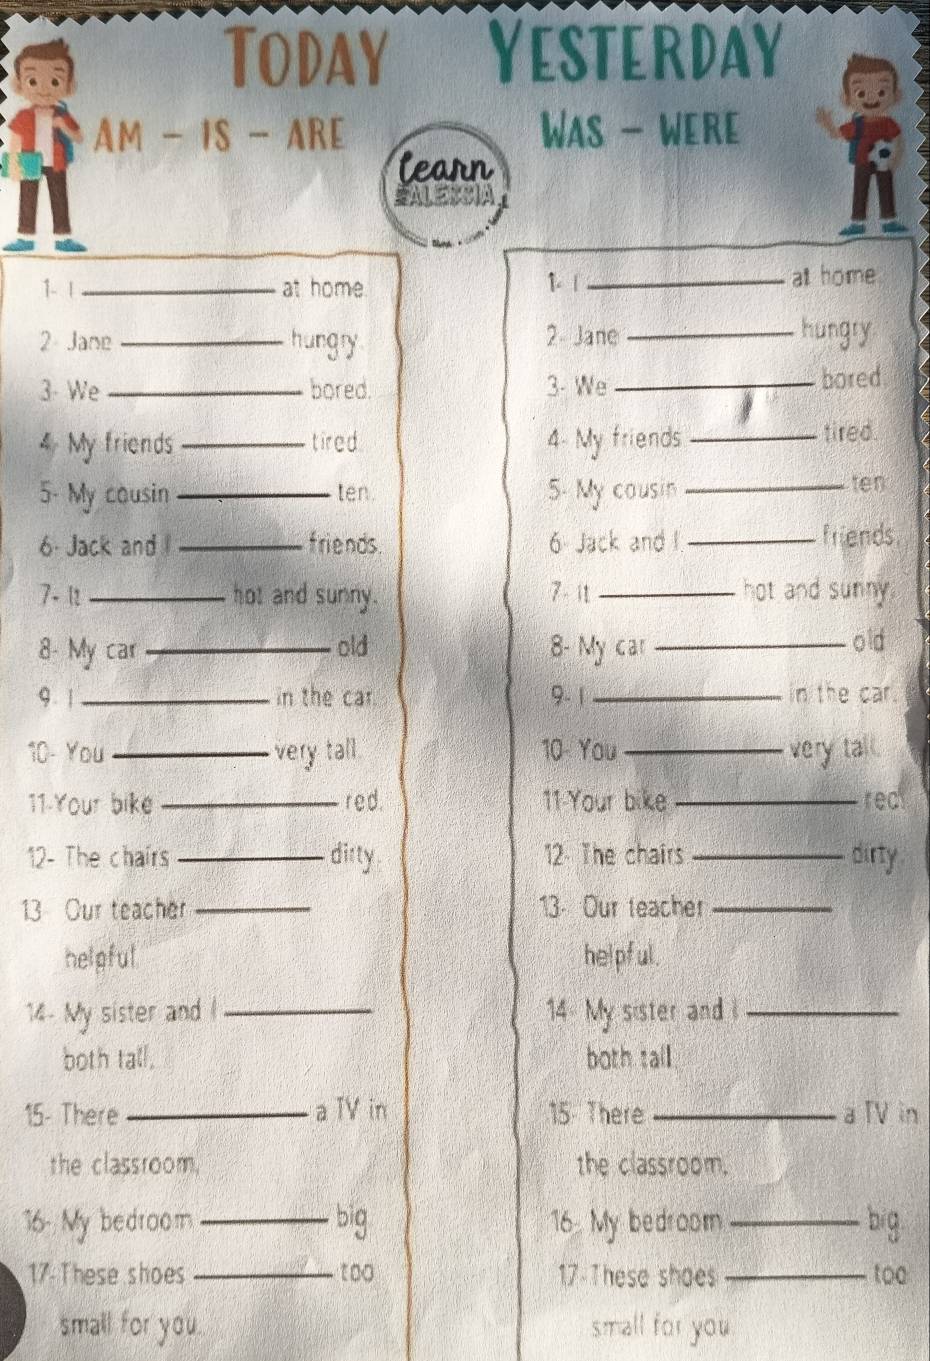 TODAY
AM - IS - ARE
YESTERDAY
WAS - WERE
learn
ALESSIA
1- I ____________ at home.
2- Jane ____________ hungry.
3- We ____________ bored.
4- My friends ____________ tired
5- My cousin ____________ ten.
6- Jack and I ____________ friends.
7- It ____________ hot and sunny.
8- My car ____________ old
9- I ____________ in the car.
10- You ____________ very tall.
11-Your bike ____________ red.
12- The chairs ____________ dirty.
13- Our teacher ____________
helpful.
14- My sister and I ____________
both tall.
15- There ____________ a TV in
the classroom.
16- My bedroom ____________ big
17-These shoes ____________ too
small for you.
1- I ____________ at home.
2- Jane ____________ hungry.
3- We ____________ bored.
4- My friends ____________ tired.
5- My cousin ____________ ten
6- Jack and I ____________ friends.
7- It ____________ hot and sunny.
8- My car ____________ old
9- I ____________ in the car.
10- You ____________ very tall.
11-Your bike ____________ red
12- The chairs ____________ dirty.
13- Our teacher ____________
helpful.
14- My sister and I ____________
both tall.
15- There ____________ a TV in
the classroom.
16- My bedroom ____________ big.
17-These shoes ____________ too
small for you